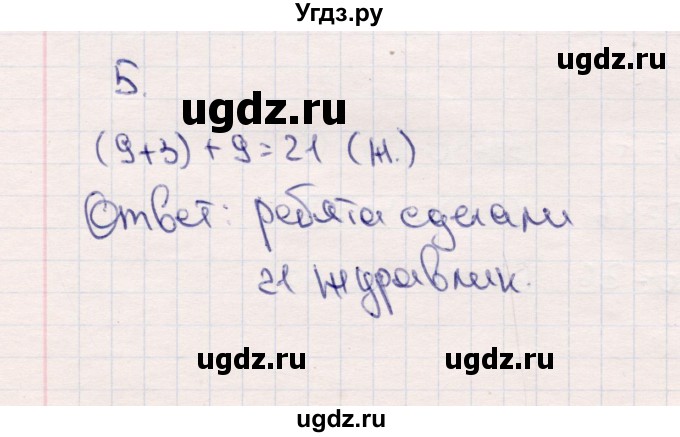 Угдз.ру
5.
ugdz.ru
(9+3)+9=21 (ж.)
Ответ: ребята сделали
ugdz.ru
21 журавлик.
ugdz.ru ugdz.ru
ugdz.ru